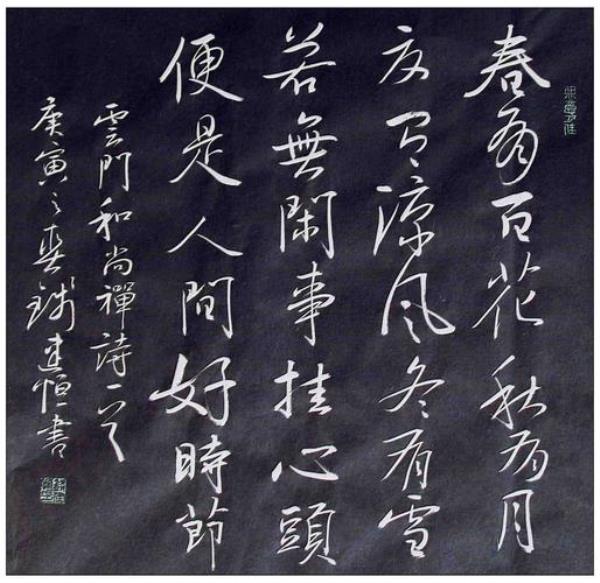 春有百花秋有月
夏有涼風冬有雪
若無閑事挂心頭
便是人間好時節
雲門和尚禪詩一首
庚寅之錢建恒書